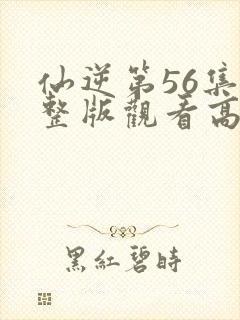 仙逆第56集
整版觀看高
黑紅碧時